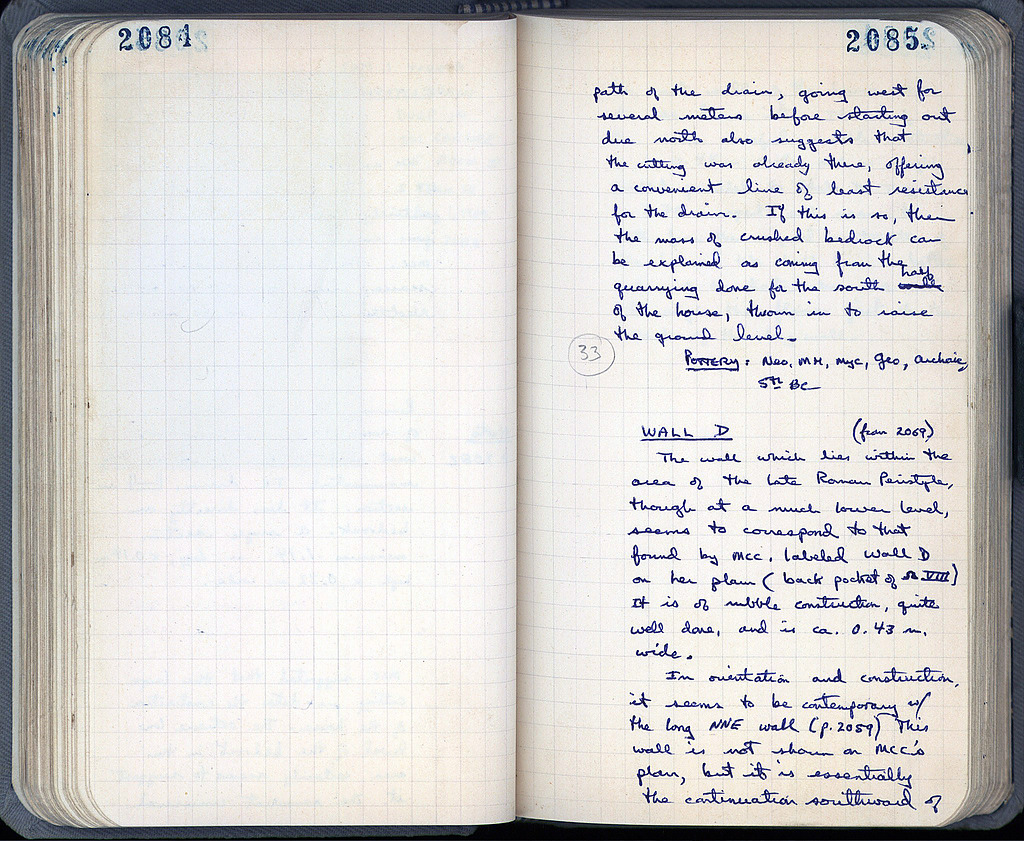 2084
2085
path of the drain, going west for
several meters before starting out
due north also suggests that
the cutting was already there, offering
a convenient line of least resistance
for the drain. If this is so, then
the mass of crushed bedrock can
be explained as coming from the
quarrying done for the south walls half
of the house, thrown in to raise
the ground level.
33
POTTERY: Neo, MH, Myc, Geo, Archaic,
5th BC
WALL D (from 2069)
The wall which lies within the
area of the Late Roman Peristyle,
though at a much lower level,
seems to correspond to that
found by MCC. labeled Wall D
on her plan (back pocket of Ω VIII)
It is of rubble construction, quite
well done, and is ca. 0.43 m.
wide.
In orientation and construction,
it seems to be contemporary w/
the long NNE wall (p. 2059) This
wall is not shown on MCC's
plan, but it is essentially
the continuation southward of